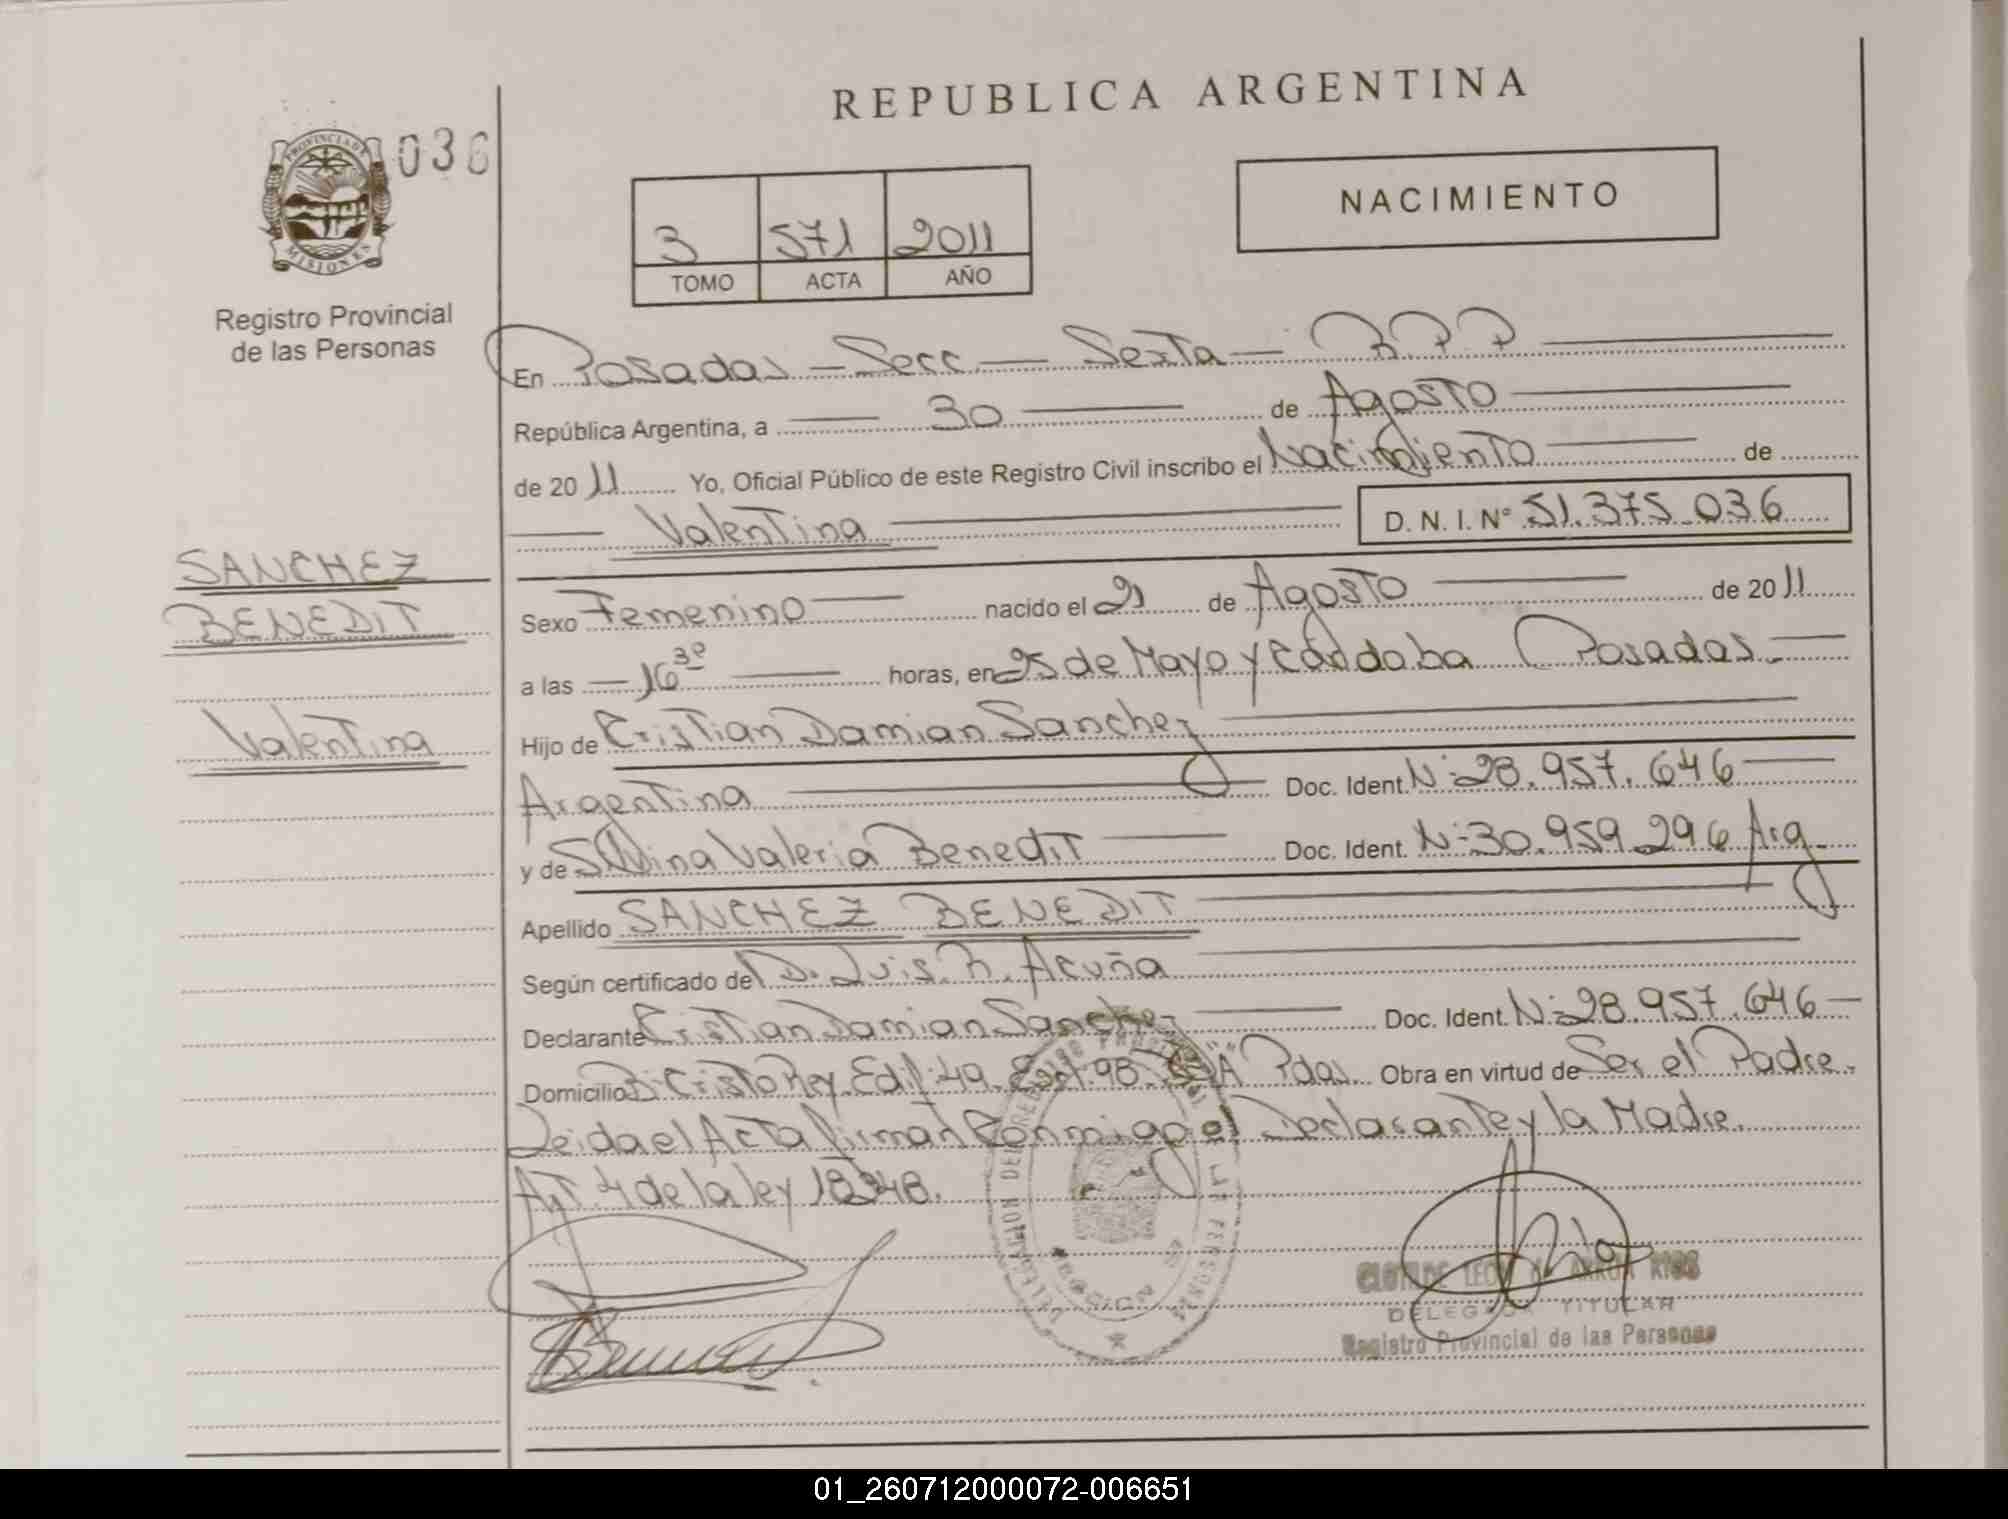 REPUBLICA ARGENTINA
PROVINCIA DE
MISIONES
036
Registro Provincial
de las Personas
NACIMIENTO
3 571 2011
TOMO ACTA AÑO
En Posadas - Secc - Sexta - R.P.P
República Argentina, a 30 de Agosto
de 2011 Yo, Oficial Público de este Registro Civil inscribo el Nacimiento de
Valentina D. N. I. Nº 51.375.036
SANCHEZ
BENEDIT
Valentina
Sexo Femenino nacido el 21 de Agosto de 2011
a las 16 30 horas, en 25 de Mayo y Córdoba Posadas.
Hijo de Cristian Damian Sanchez
Argentina Doc. Ident. Nº 28.957.646
y de Silvina Valeria Benedit Doc. Ident. Nº 30.959.296 Arg.
Apellido SANCHEZ BENEDIT
Según certificado de D. Luis R. Acuña
Declarante Cristian Damian Sanchez Doc. Ident. Nº 28.957.646
Domicilio Bº Cristo Rey Edif. 49 "A" Pdas. Obra en virtud de Ser el Padre.
Leida el Acta firman Conmigo el Declarante y la Madre.
Art. 4 de la ley 18248.
DELEGACION DEL REGISTRO PROVINCIAL DE LAS PERSONAS
DELEGADA TITULAR
Registro Provincial de las Personas
01_260712000072-006651